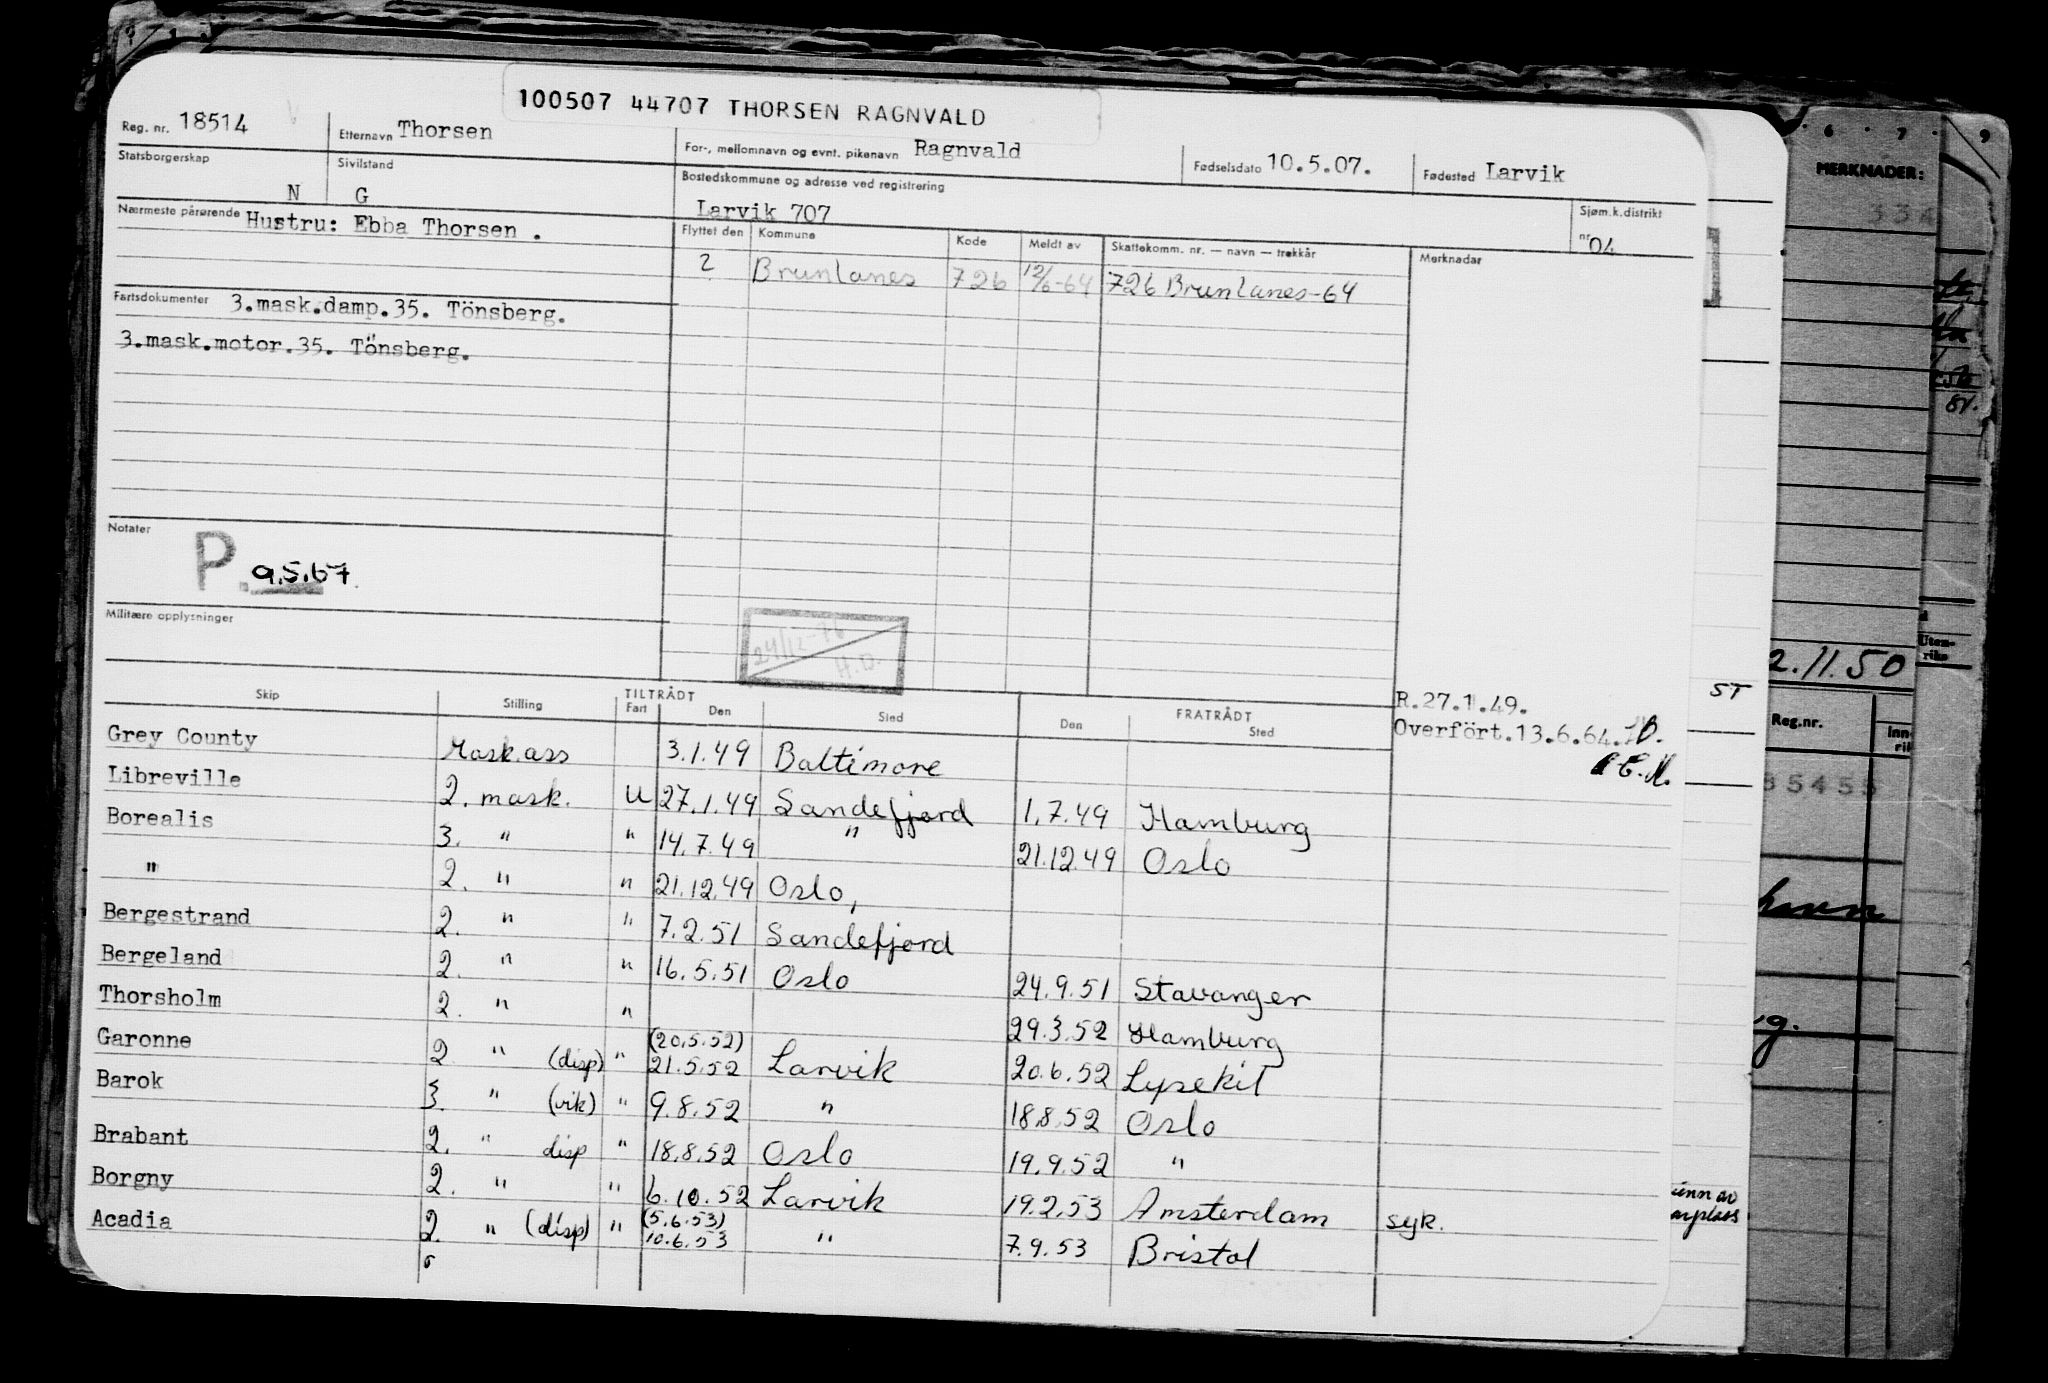 100507 44707 THORSEN RAGNVALD
Reg. nr. 18514 Etternavn Thorsen For-, mellomnavn og evnt. pikenavn Ragnvald Fødselsdato 10.5.07. Fødested Larvik
Statsborgerskap N Sivilstand G Bostedskommune og adresse ved registrering Larvik 707 Sjøm.k.distrikt nr 04
Nærmeste pårørende Hustru: Ebba Thorsen .
Flyttet den Kommune Kode Meldt av Skattekomm. nr. — navn — trekkår Merknader
2 Brunlanes 726 12/6-64 726 Brunlanes-64
Fartsdokumenter 3.mask.damp.35. Tönsberg.
3.mask.motor.35. Tönsberg.
Notater
P. 9.5.67.
Militære opplysninger
24/12-76
H.O.
R.27.1.49.
Overfört.13.6.64.
Skip Stilling TILTRÅDT Fart Den Sted FRATRÅDT Den Sted
Grey County Mask.ass 3.1.49 Baltimore
Libreville 2. mask. U 27.1.49 Sandefjord 1.7.49 Hamburg
Borealis 3. " " 14.7.49 " 21.12.49 Oslo
" 2. " " 21.12.49 Oslo,
Bergestrand 2. " " 7.2.51 Sandefjord
Bergeland 2. " " 16.5.51 Oslo 24.9.51 Stavanger
Thorsholm 2. " " 29.3.52 Hamburg
Garonne 2 " (disp) " (20.5.52) 21.5.52 Larvik 20.6.52 Lysekil
Barok 3. " (vik) " 9.8.52 " 18.8.52 Oslo
Brabant 2. " disp " 18.8.52 Oslo 19.9.52 "
Borgny 2. " " 6.10.52 Larvik 19.2.53 Amsterdam syk.
Acadia 2. " (disp) " (5.6.53) 10.6.53 " 7.9.53 Bristol
6 7 9
MERKNADER:
334
81.
Uten-
riks
2.11.50
ST
Reg.nr.
Inn-
85455